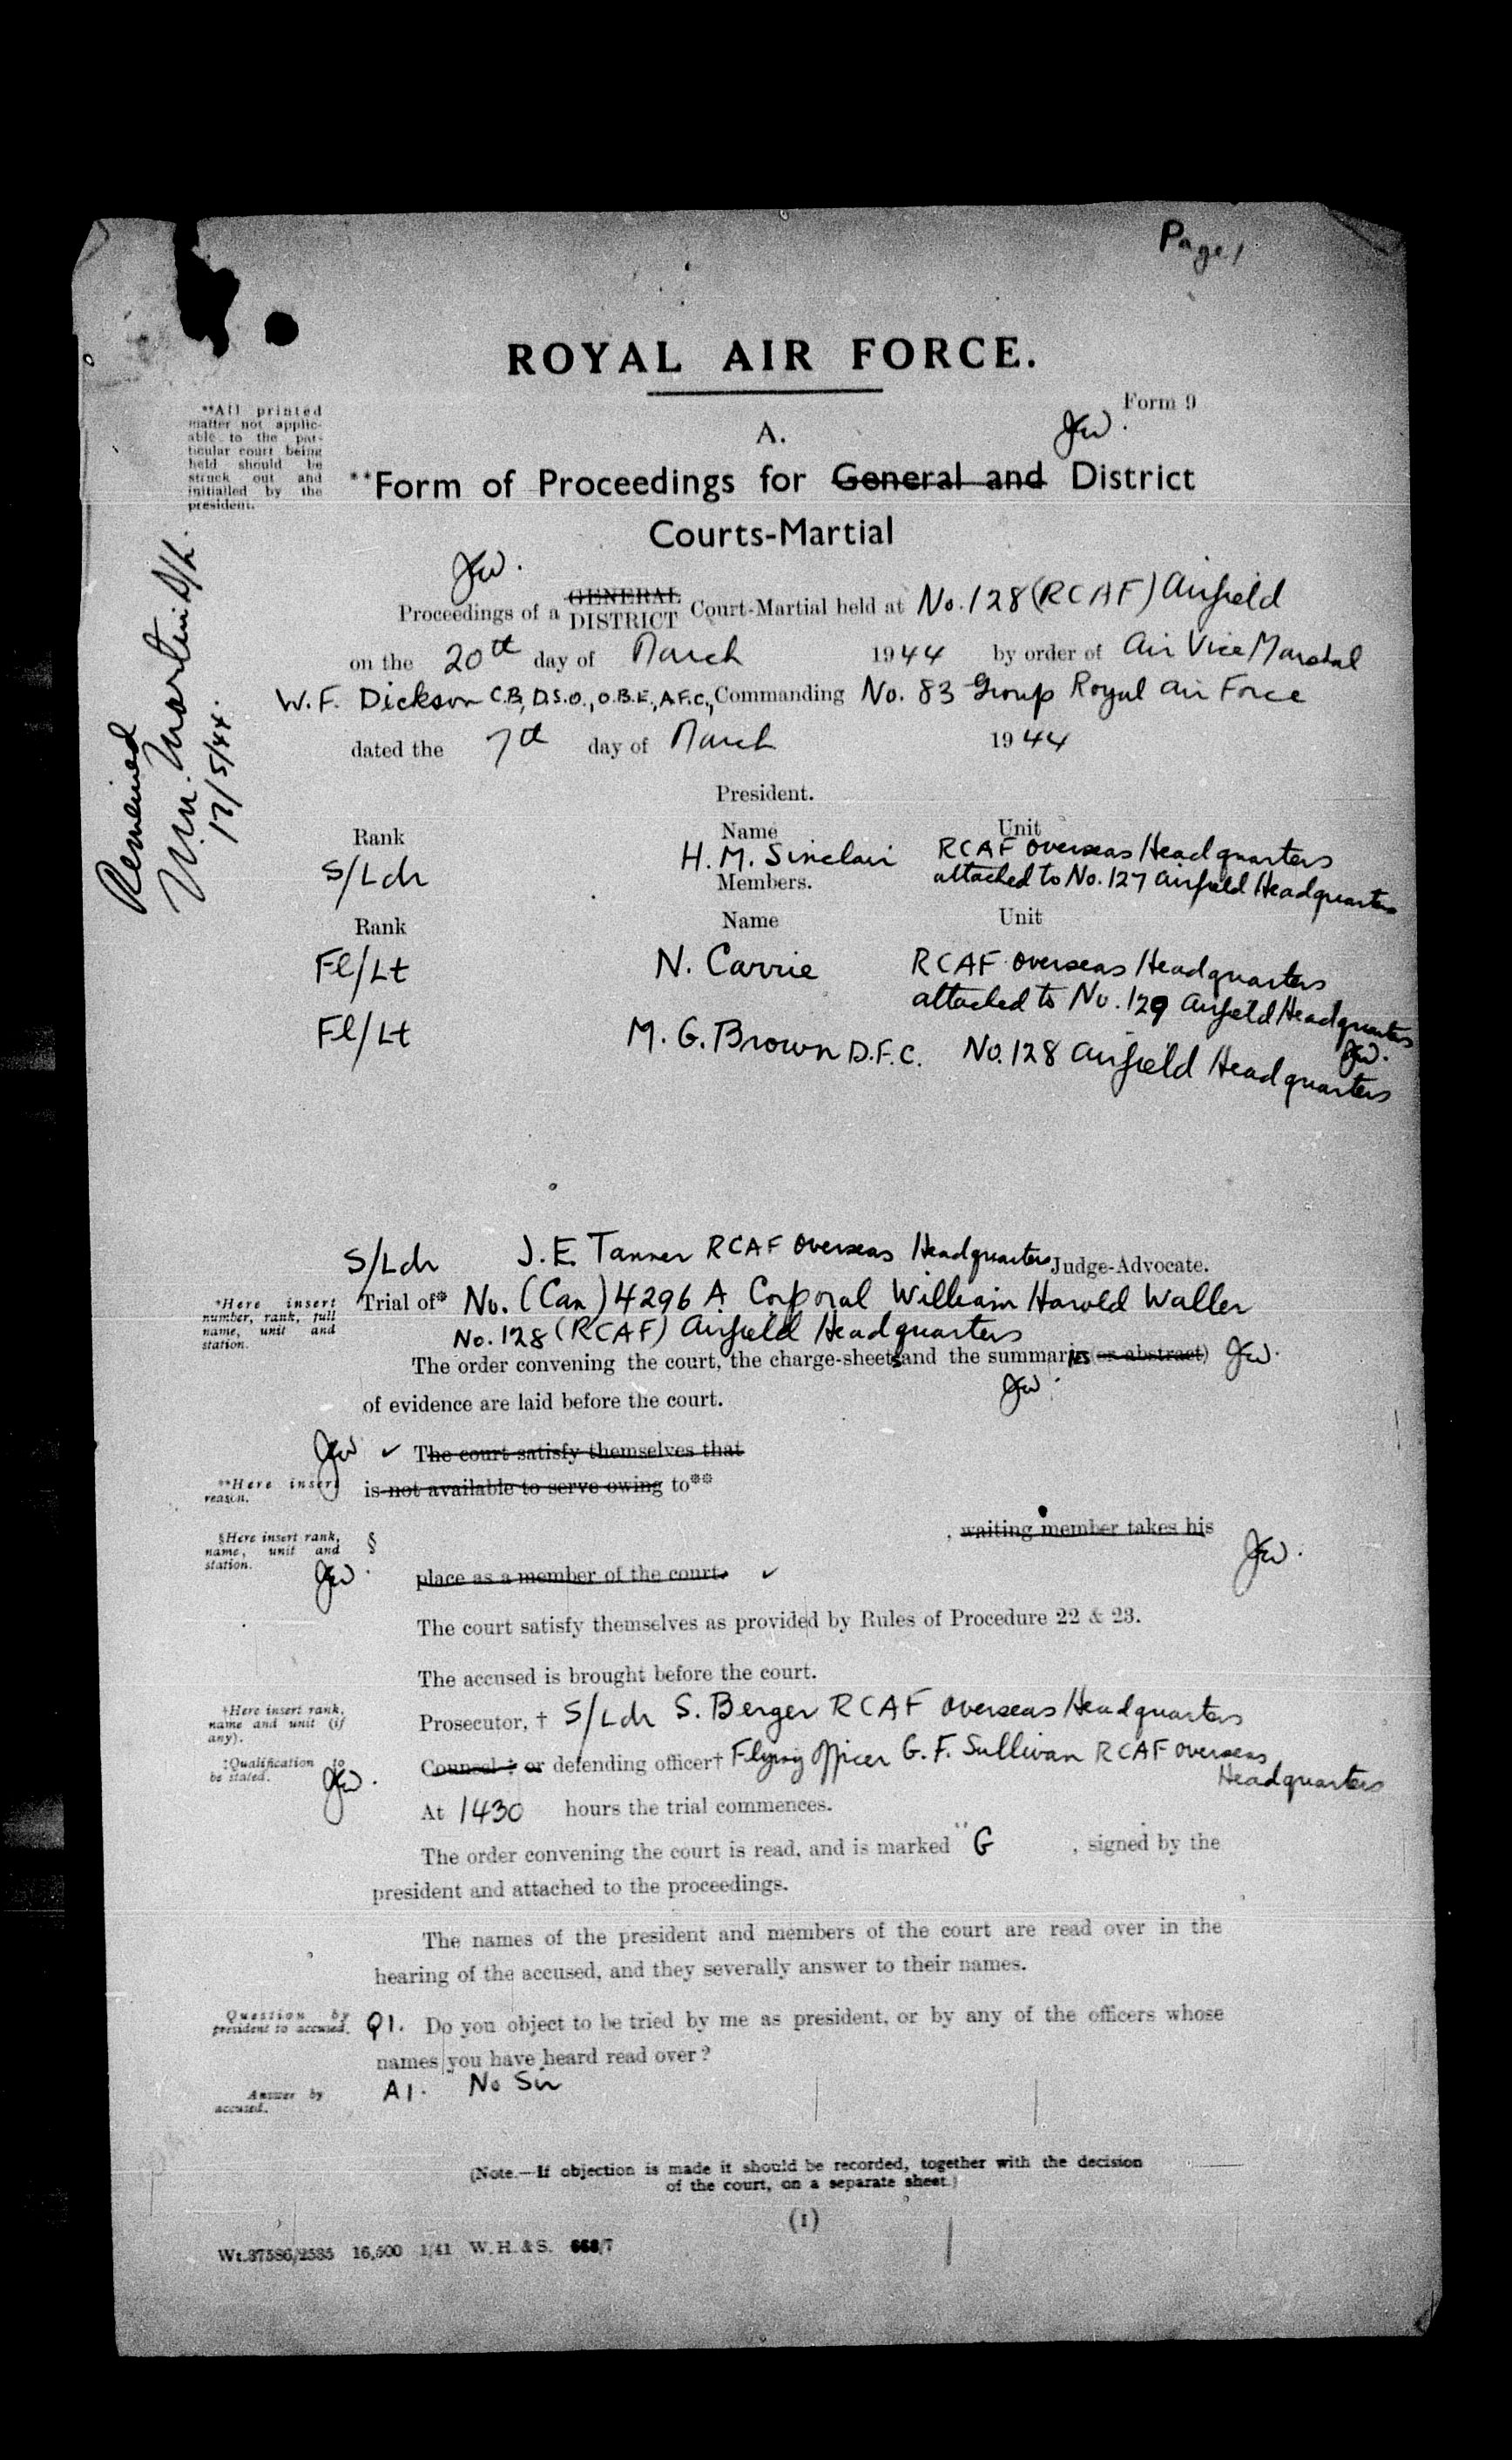 Page 1
ROYAL AIR FORCE.
Form 9
A.
**All printed
matter not applic-
able to the par-
ticular court being
held should be
struck out and
initialled by the
president.
**Form of Proceedings for General and District
Courts-Martial
Proceedings of a GENERAL DISTRICT Court-Martial held at No. 128 (RCAF) Airfield
on the 20th day of March 1944 by order of Air Vice Marshal
W. F. Dickson C.B., D.S.O., O.B.E., A.F.C., Commanding No. 83 Group Royal Air Force
dated the 7th day of March 1944
Martin S/L.
17/5/44.
President.
Rank Name Unit
S/Ldr H. M. Sinclair RCAF Overseas Headquarters
attached to No. 127 Airfield Headquarters
Members.
Rank Name Unit
Fl/Lt N. Carrie RCAF Overseas Headquarters
attached to No. 129 Airfield Headquarters
Fl/Lt M. G. Brown D.F.C. No. 128 Airfield Headquarters
S/Ldr J. E. Tanner RCAF Overseas Headquarters Judge-Advocate.
*Here insert
number, rank, full
name, unit and
station.
Trial of* No. (Can) 4296 A Corporal William Harold Waller
No. 128 (RCAF) Airfield Headquarters
The order convening the court, the charge-sheets and the summaries (or abstract)
of evidence are laid before the court.
The court satisfy themselves that
**Here insert
reason.
is not available to serve owing to**
, waiting member takes his
§Here insert rank,
name, unit and
station.
§
place as a member of the court.
The court satisfy themselves as provided by Rules of Procedure 22 & 23.
The accused is brought before the court.
†Here insert rank,
name and unit (if
any).
Prosecutor, † S/Ldr S. Berger RCAF Overseas Headquarters
‡Qualification to
be stated.
Counsel ‡ or defending officer† Flying Officer G. F. Sullivan RCAF Overseas
Headquarters
At 1430 hours the trial commences.
The order convening the court is read, and is marked "G , signed by the
president and attached to the proceedings.
The names of the president and members of the court are read over in the
hearing of the accused, and they severally answer to their names.
Question by
president to accused.
Q1. Do you object to be tried by me as president, or by any of the officers whose
names you have heard read over?
Answer by
accused.
A1. No Sir
(Note.—If objection is made it should be recorded, together with the decision
of the court, on a separate sheet.)
(1)
Wt.37586/2535 16,500 1/41 W.H.&S. 668/7